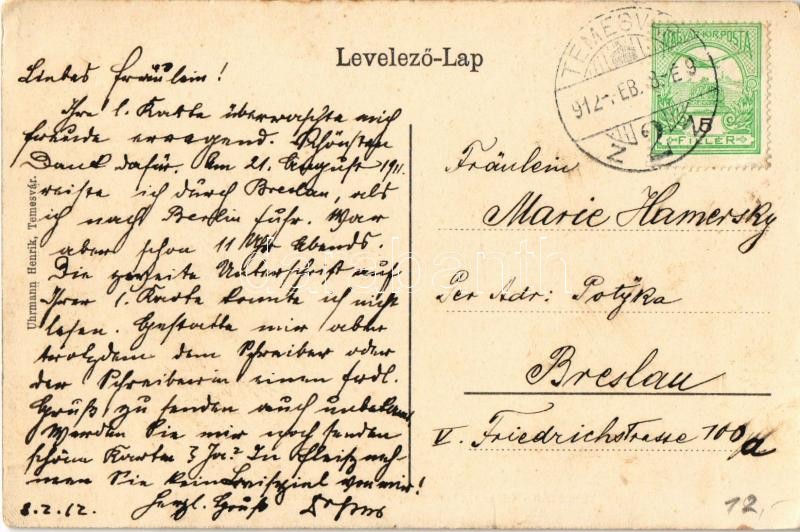 Levelező-Lap
TEMESVÁR
912 FEB. 8-E9
N 2
MAGYAR KIR. POSTA
5
FILLÉR
Liebes Fräulein!
Ihre l. Karte überraschte mich
freude erregend. Schönsten
Dank dafür. Am 21. August 1911.
reiste ich durch Breslau, als
ich nach Berlin fuhr. War
aber schon 11 Uhr Abends.
Die zweite Unterschrift auf
Ihrer l. Karte konnte ich nicht
lesen. Gestatte mir aber
trotzdem dem Schreiber oder
der Schreiberin einen frdl.
Gruß zu senden auch unbekannt.
Werden Sie mir noch senden
schöne Karten? Ja? In Fleiß neh-
men Sie kein Beispiel von mir!
8.2.12. Herzl. Gruß
Fräulein
Marie Hamersky
Per Adr: Potyka
Breslau
V. Friedrichstrasse 100/a
Uhrmann Henrik, Temesvár.
darabanth
12,-